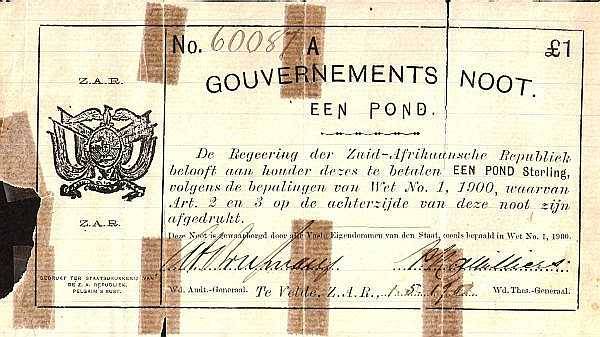 No. 60087 A £1
Z.A.R.
GOUVERNEMENTS NOOT.
EEN POND.
De Regeering der Zuid-Afrikaansche Republiek
belooft aan houder dezes te betalen EEN POND Sterling,
volgens de bepalingen van Wet No. 1, 1900, waarvan
Art. 2 en 3 op de achterzijde van deze noot zijn
afgedrukt.
Z.A.R.
Deze Noot is gewaarborgd door alle Vaste Eigendommen van den Staat, zooals bepaald in Wet No. 1, 1900.
GEDRUKT TER STAATSDRUKKERIJ VAN
DE Z. A. REPUBLIEK,
PELGRIM'S RUST.
Wd. Audt.-Generaal. Te Velde, Z.A.R., 1.5.190 Wd. Thes.-Generaal.